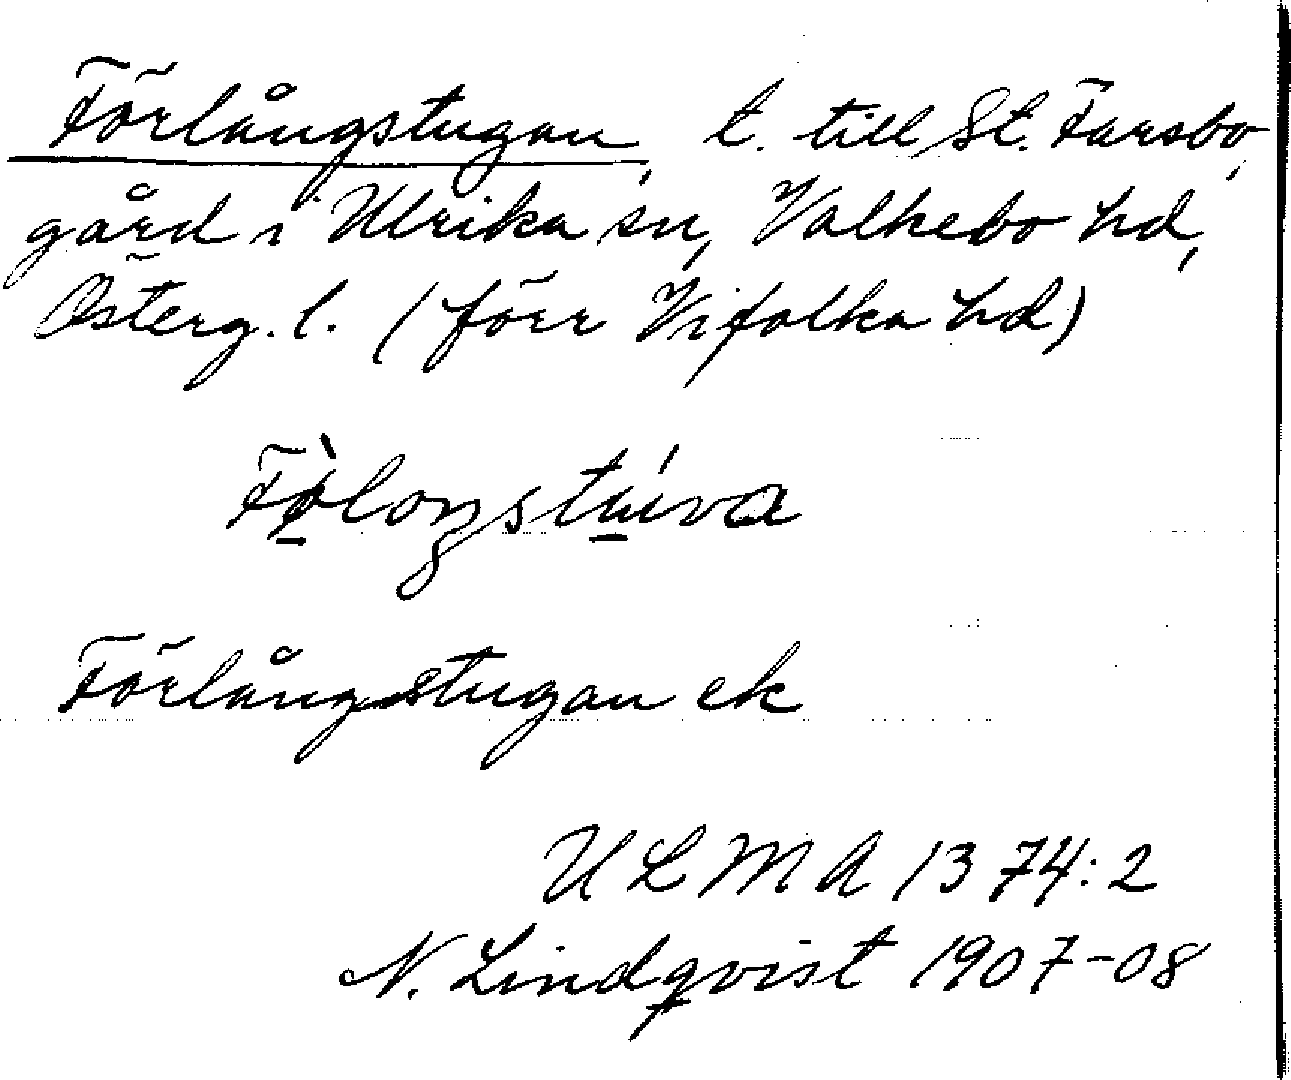 Förlångstugan, t. till St. Farsbo,
gård i Ulrika sn, Valkebo hd,
Österg. l. (förr Vifolka hd)
Fø̀loŋstúva
Förlångstugan ek
ULMA 1374:2
N. Lindqvist 1907-08